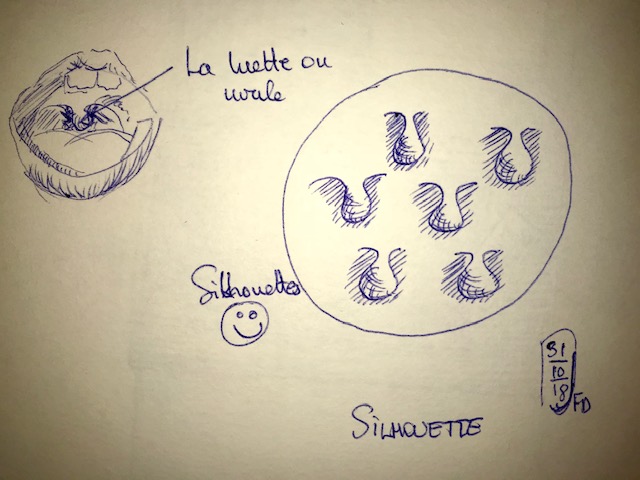 La luette ou
uvule
Silhouettes
31
10
18
FD
SiLHOUETTE